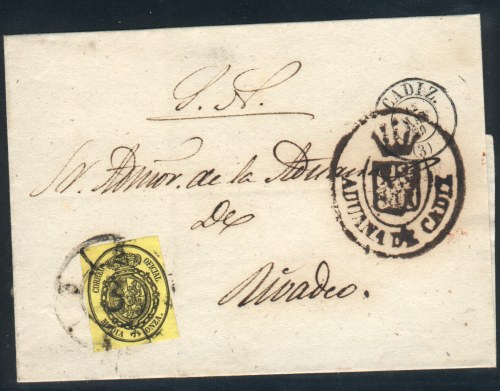 CADIZ.
(3)
S. N.
ADUANA DE CADIZ
Sr. Admor. de la Aduana
De
Rivadeo.
CORREO OFICIAL
MEDIA ONZA.